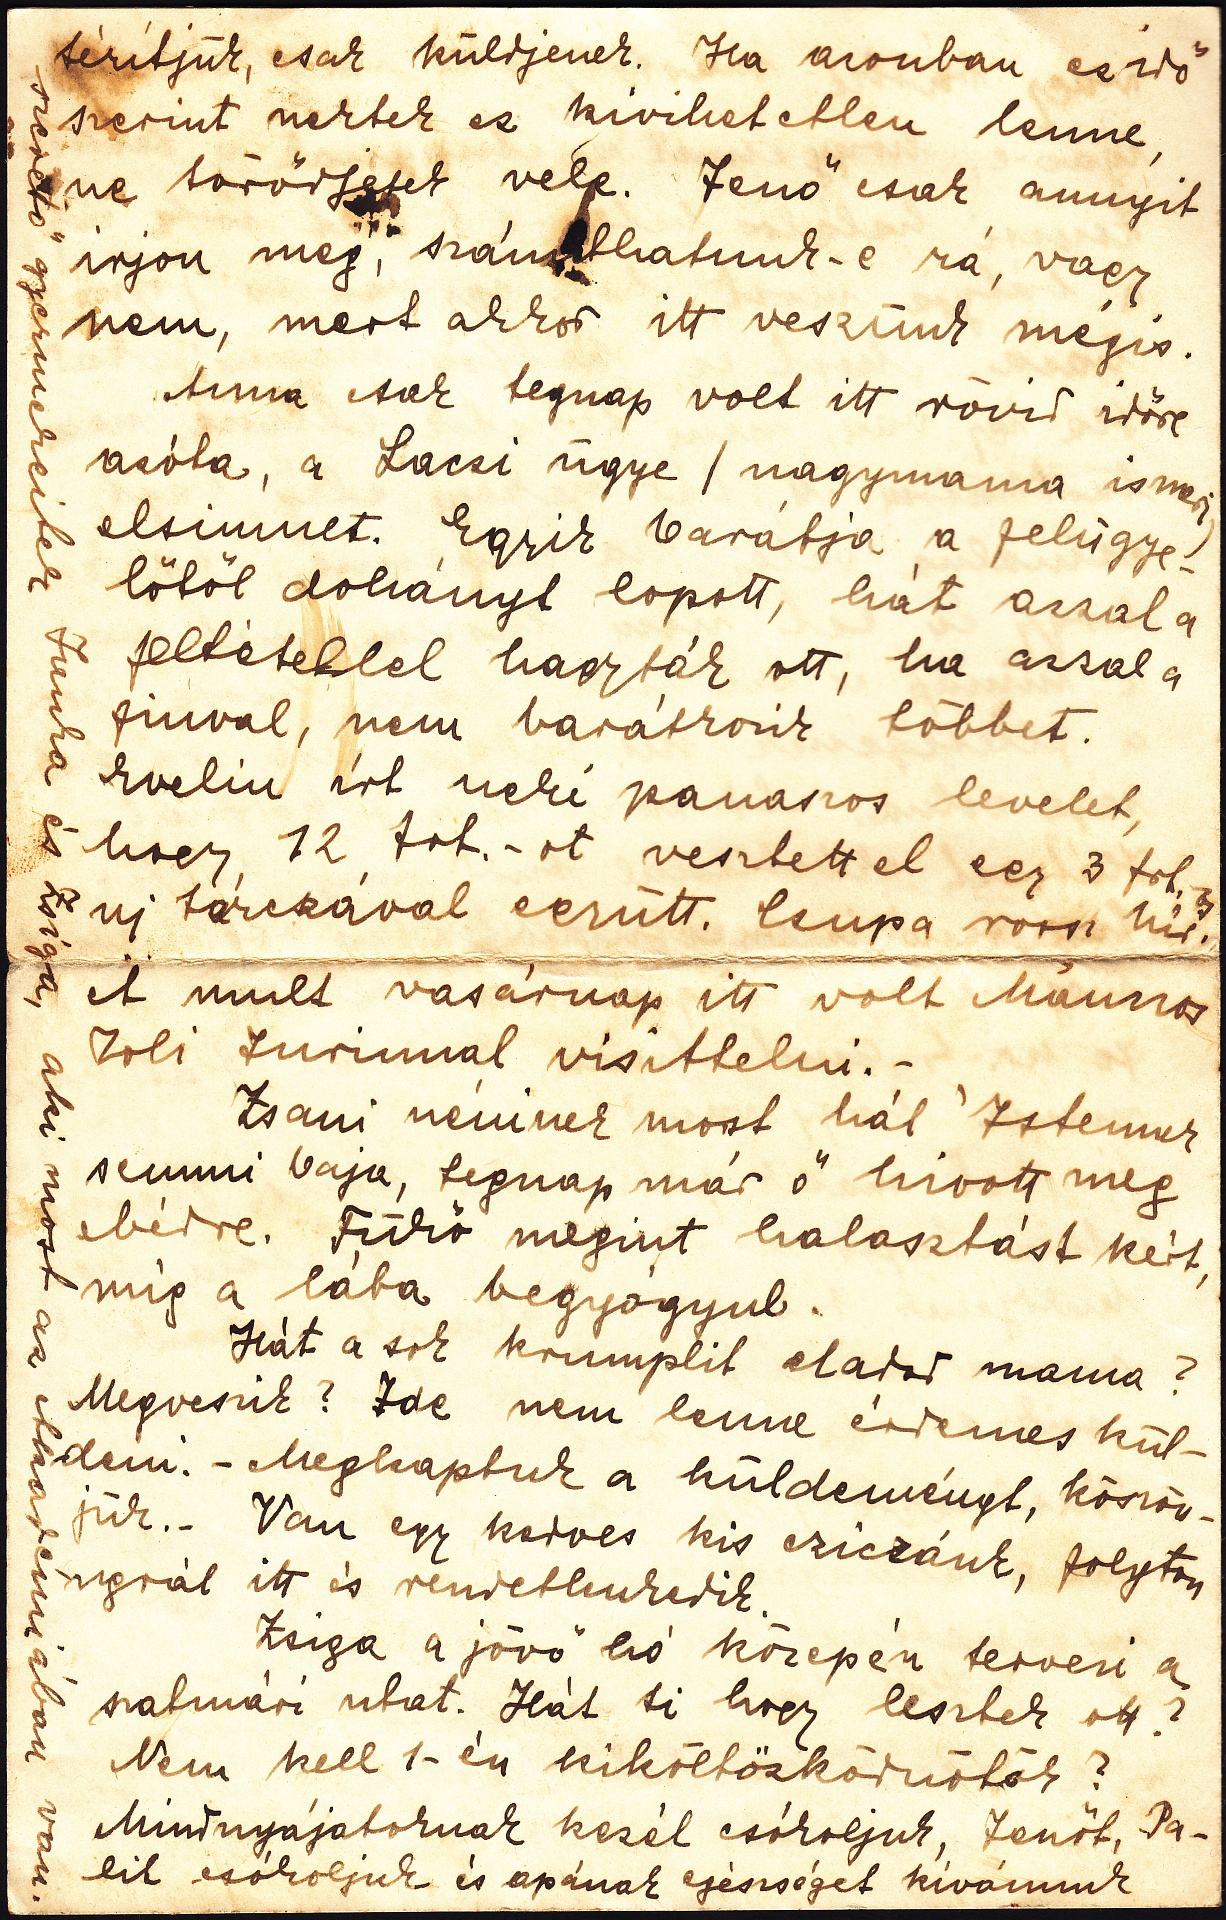 térítjük, csak küldjenek. Ha azonban ez idő
szerint nektek ez kivihetetlen lenne,
ne törődjetek vele. Jenő csak annyit
irjon meg, számithatunk-e rá, vagy
nem, mert akkor itt veszünk mégis.
Anna csak tegnap volt itt rövid időre
azóta, a Laczi ügye / nagymama ismeri /
elsimult. Egyik barátja a felügye-
lőtől dohányt lopott, hát azzal a
feltétellel hagyták ott, ha azzal a
fiuval, nem barátkozik többet.
Evelin írt neki panaszos levelet,
hogy 12 frt.-ot vesztett el egy 3 frt.-
uj tárczával együtt. Csupa rossz hír.
A mult vasárnap itt volt Mánszos
Zoli Jurinnal visittelni.-
Zsani néninek most hál' Istennek
semmi baja, tegnap már ő hivott meg
ebédre. Fükő megint halasztást kért,
míg a lába begyógyul.
Hát a sok krumplit eladod mama?
Megveszik? Ide nem lenne érdemes kül-
deni. - Megkaptuk a küldeményt, köszön-
jük.- Van egy kedves kis cziczánk, folyton
ugrál itt és rendetlenkedik.
Zsiga a jövő hó közepén tervezi a
szatmári utat. Hát ti hogy lesztek ott?
Nem kell 1-én kiköltözködnötök?
Mindnyájatoknak kezét csókoljuk, Jenőt, Pa-
lit csókoljuk és apának egészséget kívánunk
szerető gyermekeitek Junka és Zsiga, aki most az Akadémiában van.